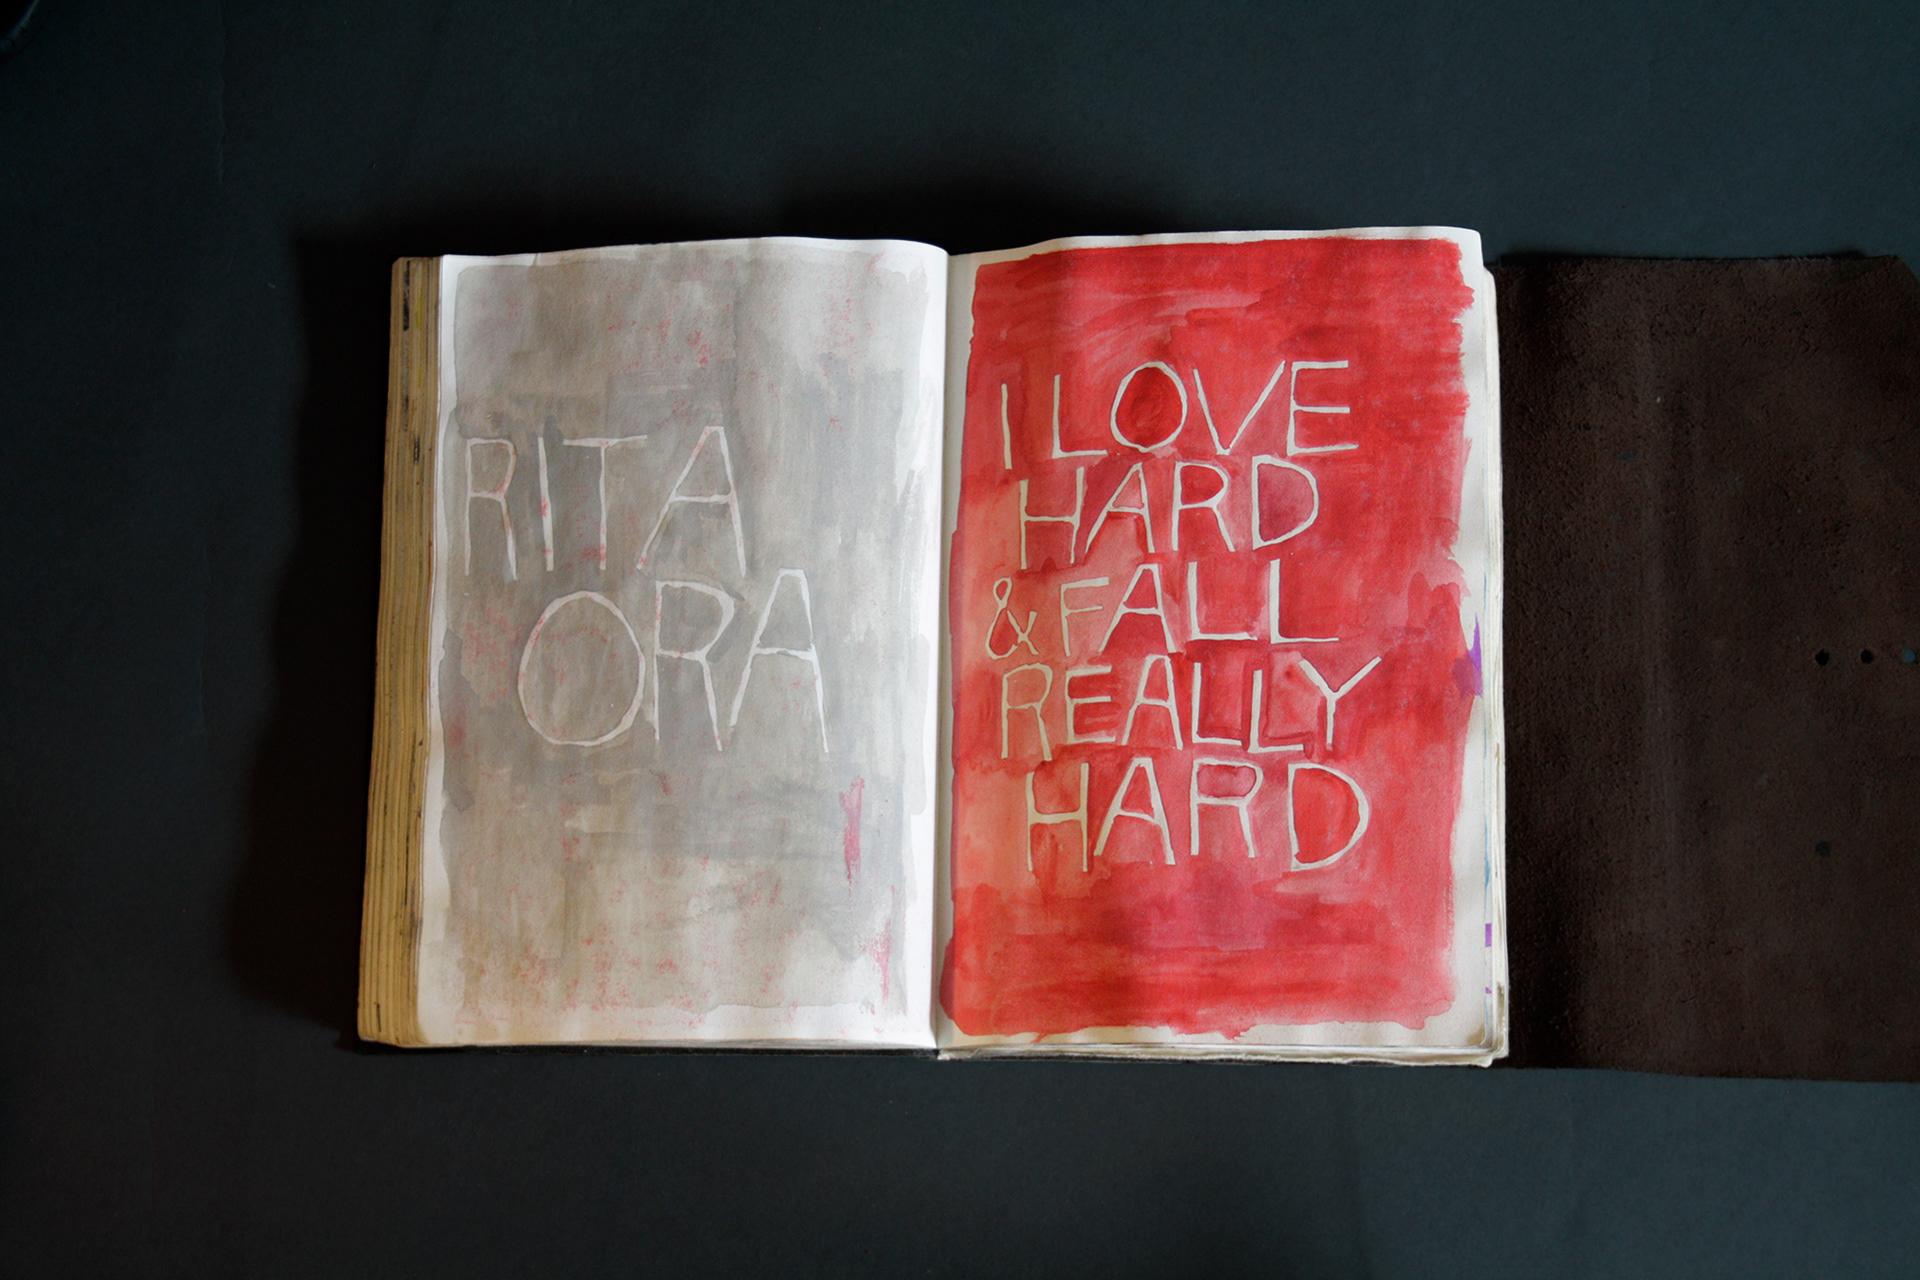 RITA
ORA
I LOVE
HARD
& FALL
REALLY
HARD